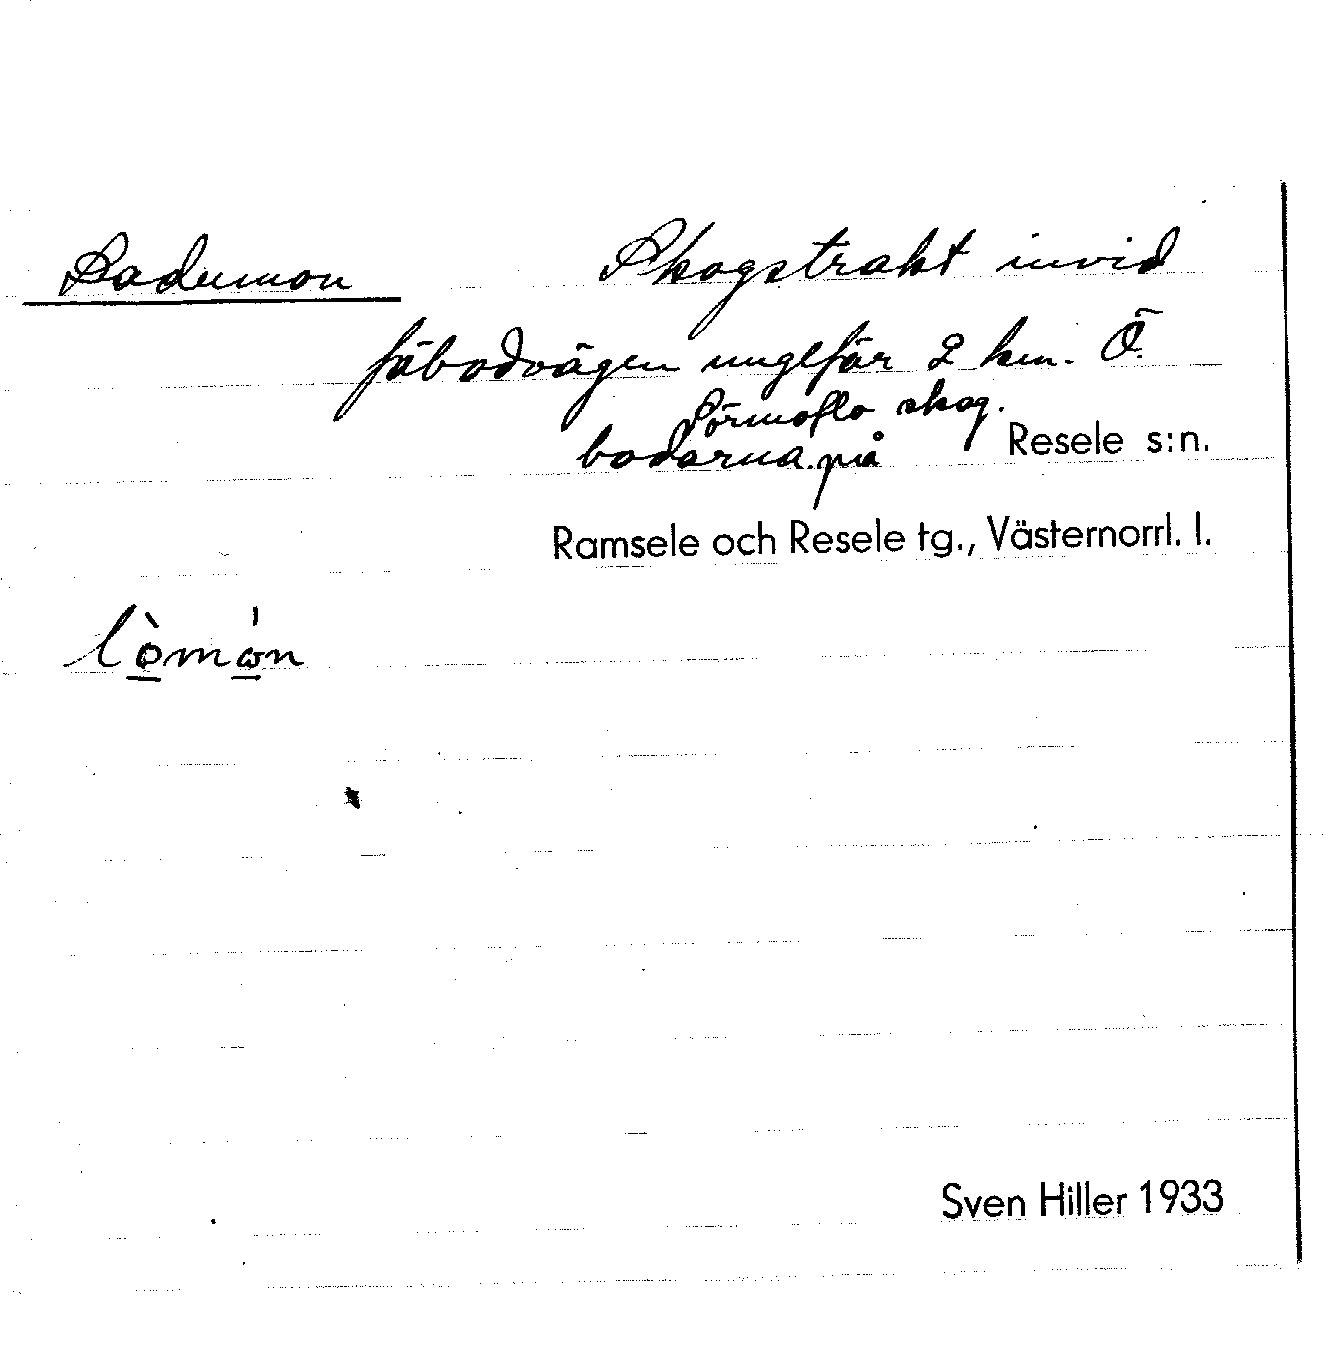 Ladumon
Skogstrakt invid
fäbodvägen ungefär 2 km. Ö.
bodarna på Sörmoflo skog.
Resele s:n.
Ramsele och Resele tg., Västernorrl. l.
lò̲mó̲n
Sven Hiller 1933